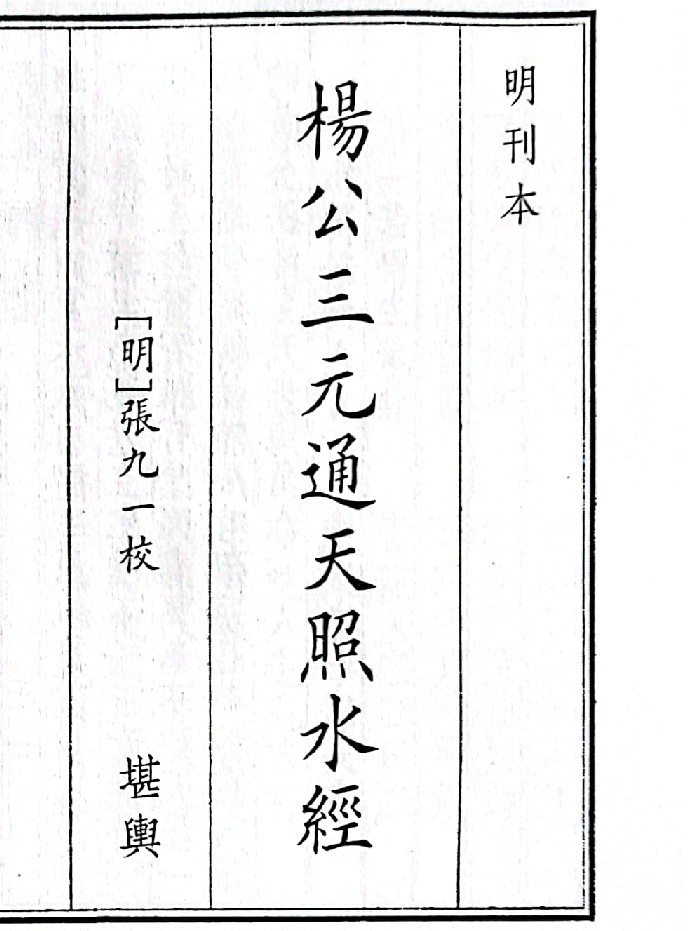 明刊本
楊公三元通天照水經
［明］張九一校 堪輿